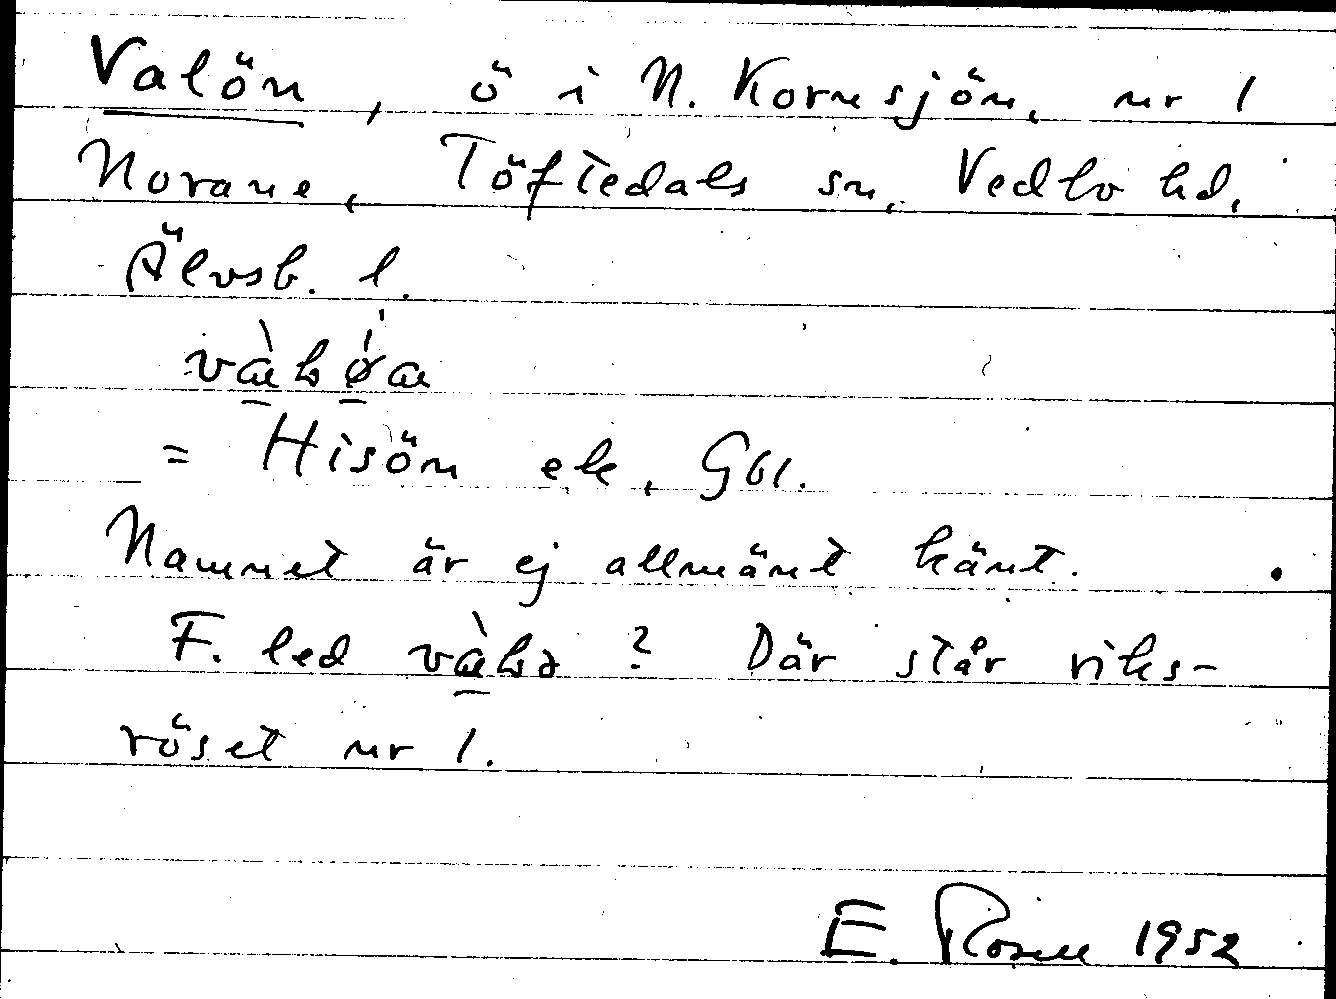 Valön, ö i N. Kornsjön, nr 1
Norane, Töftedals sn, Vedbo hd,
Älvsb. l.
= Hisön ek, Gbl.
Namnet är ej allmänt känt.
F. led ? Där står riks-
röset nr 1.
E. Rosell 1952